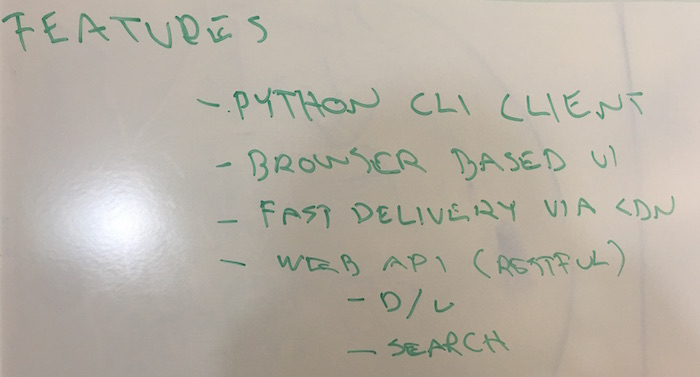 FEATURES
- PYTHON CLI CLIENT
- BROWSER BASED UI
- FAST DELIVERY VIA CDN
- WEB API (RESTFUL)
- D/L
- SEARCH